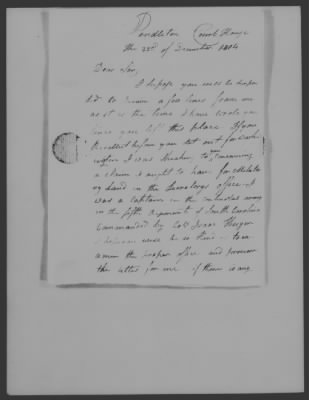 Pendleton Court House
the 22d of December 1804
Dear Sir,
I hope you will be dispos
ed to receive a few lines from me
as it is the first I have wrote you
since you left this place. If you
recollect before you set out for Wash
ington I was speaking to you concerning
a claim I ought to have for
land in the office I
was a Captain in the Continental army
in the fifth Regiment of South Carolina
commanded by Colo Isaac Huger
I hope you will be so kind to ex
amine the proper office and procure
the same for me if there is any